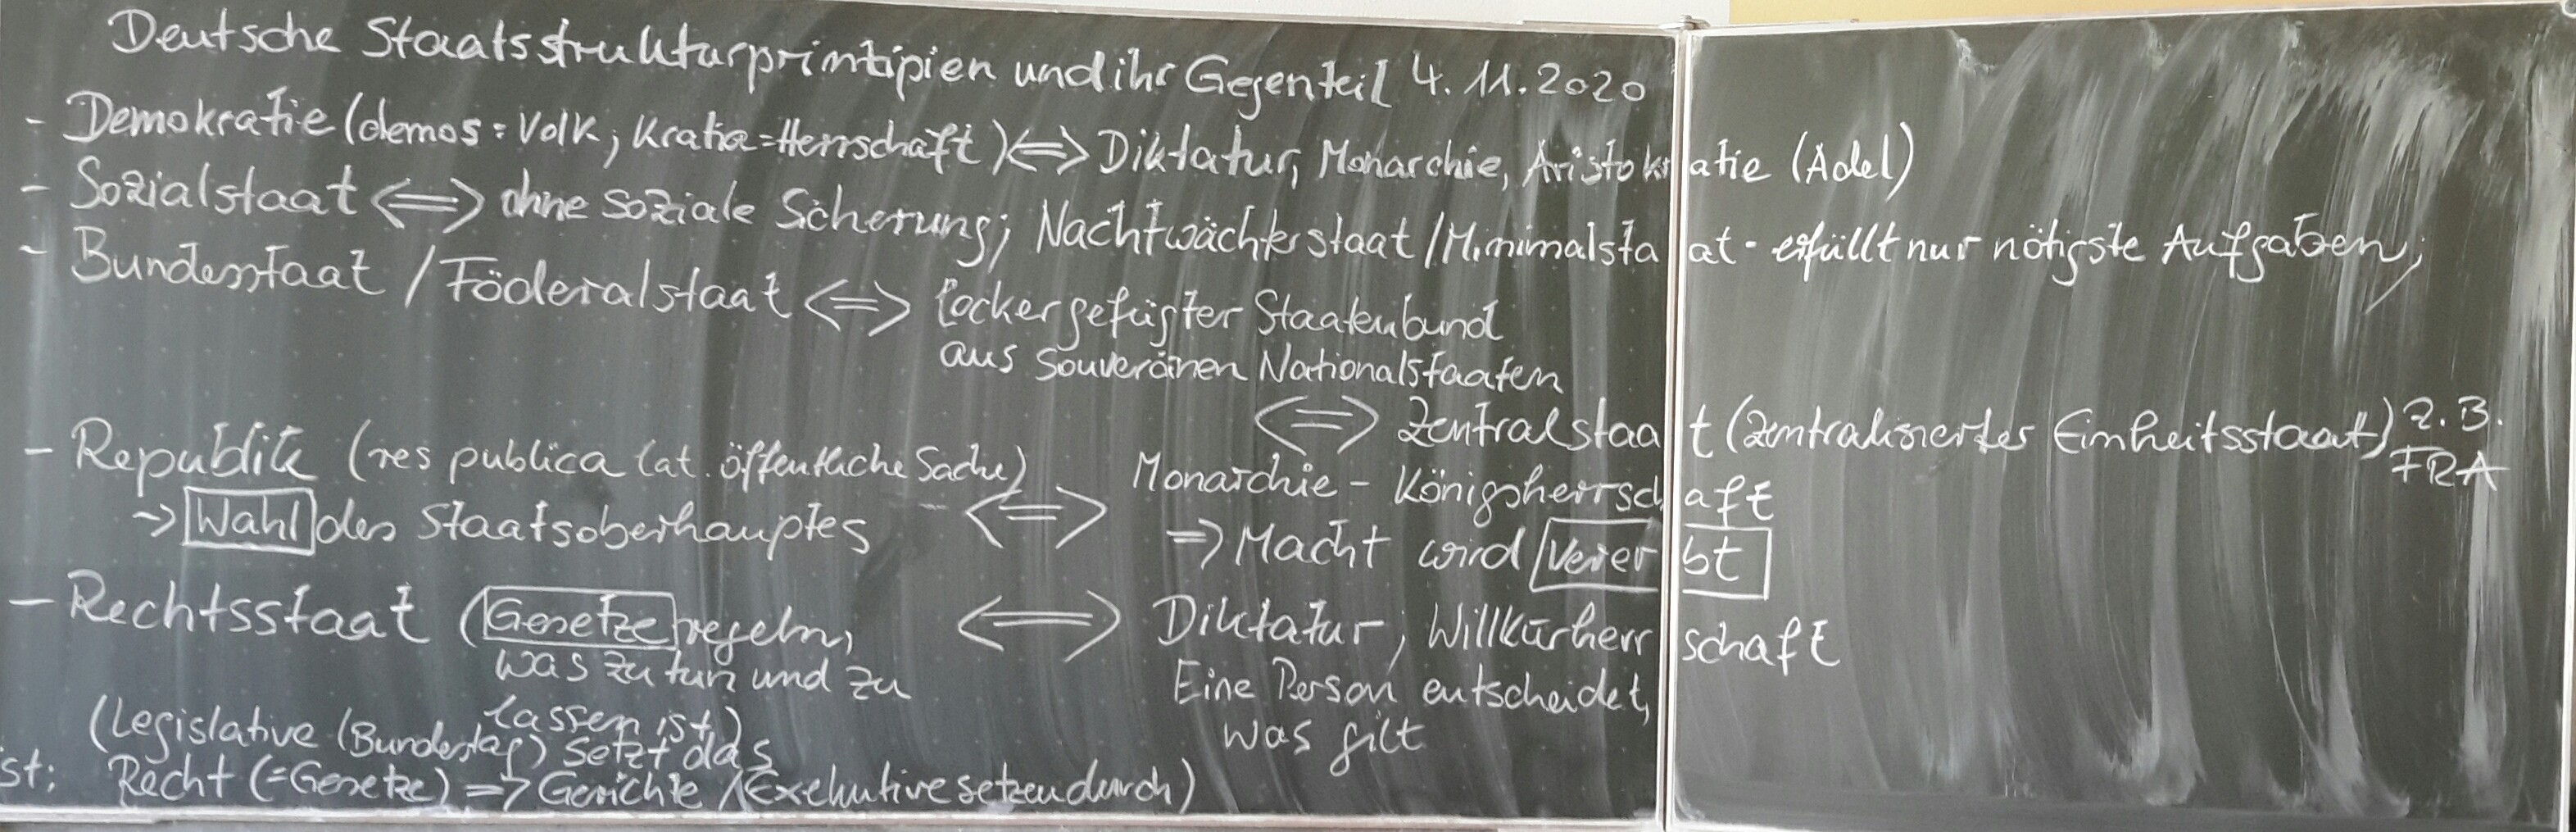 Deutsche Staatsstrukturprinzipien und ihr Gegenteil 4.11.2020
- Demokratie (demos = Volk; Kratia = Herrschaft) <=> Diktatur, Monarchie, Aristokratie (Adel)
- Sozialstaat <=> ohne soziale Sicherung; Nachtwächterstaat / Minimalstaat - erfüllt nur nötigste Aufgaben;
- Bundesstaat / Föderalstaat <=> locker gefügter Staatenbund
aus souveränen Nationalstaaten
<=> Zentralstaat (zentralisierter Einheitsstaat) z.B.
FRA
- Republik (res publica lat. öffentliche Sache) <=> Monarchie - Königsherrschaft
-> Wahl des Staatsoberhauptes => Macht wird vererbt
- Rechtsstaat (Gesetze regeln, <=> Diktatur, Willkürherrschaft
was zu tun und zu Eine Person entscheidet,
lassen ist) was gilt
(Legislative (Bundestag) setzt das
st; Recht (=Gesetze) => Gerichte / Exekutive setzen durch)